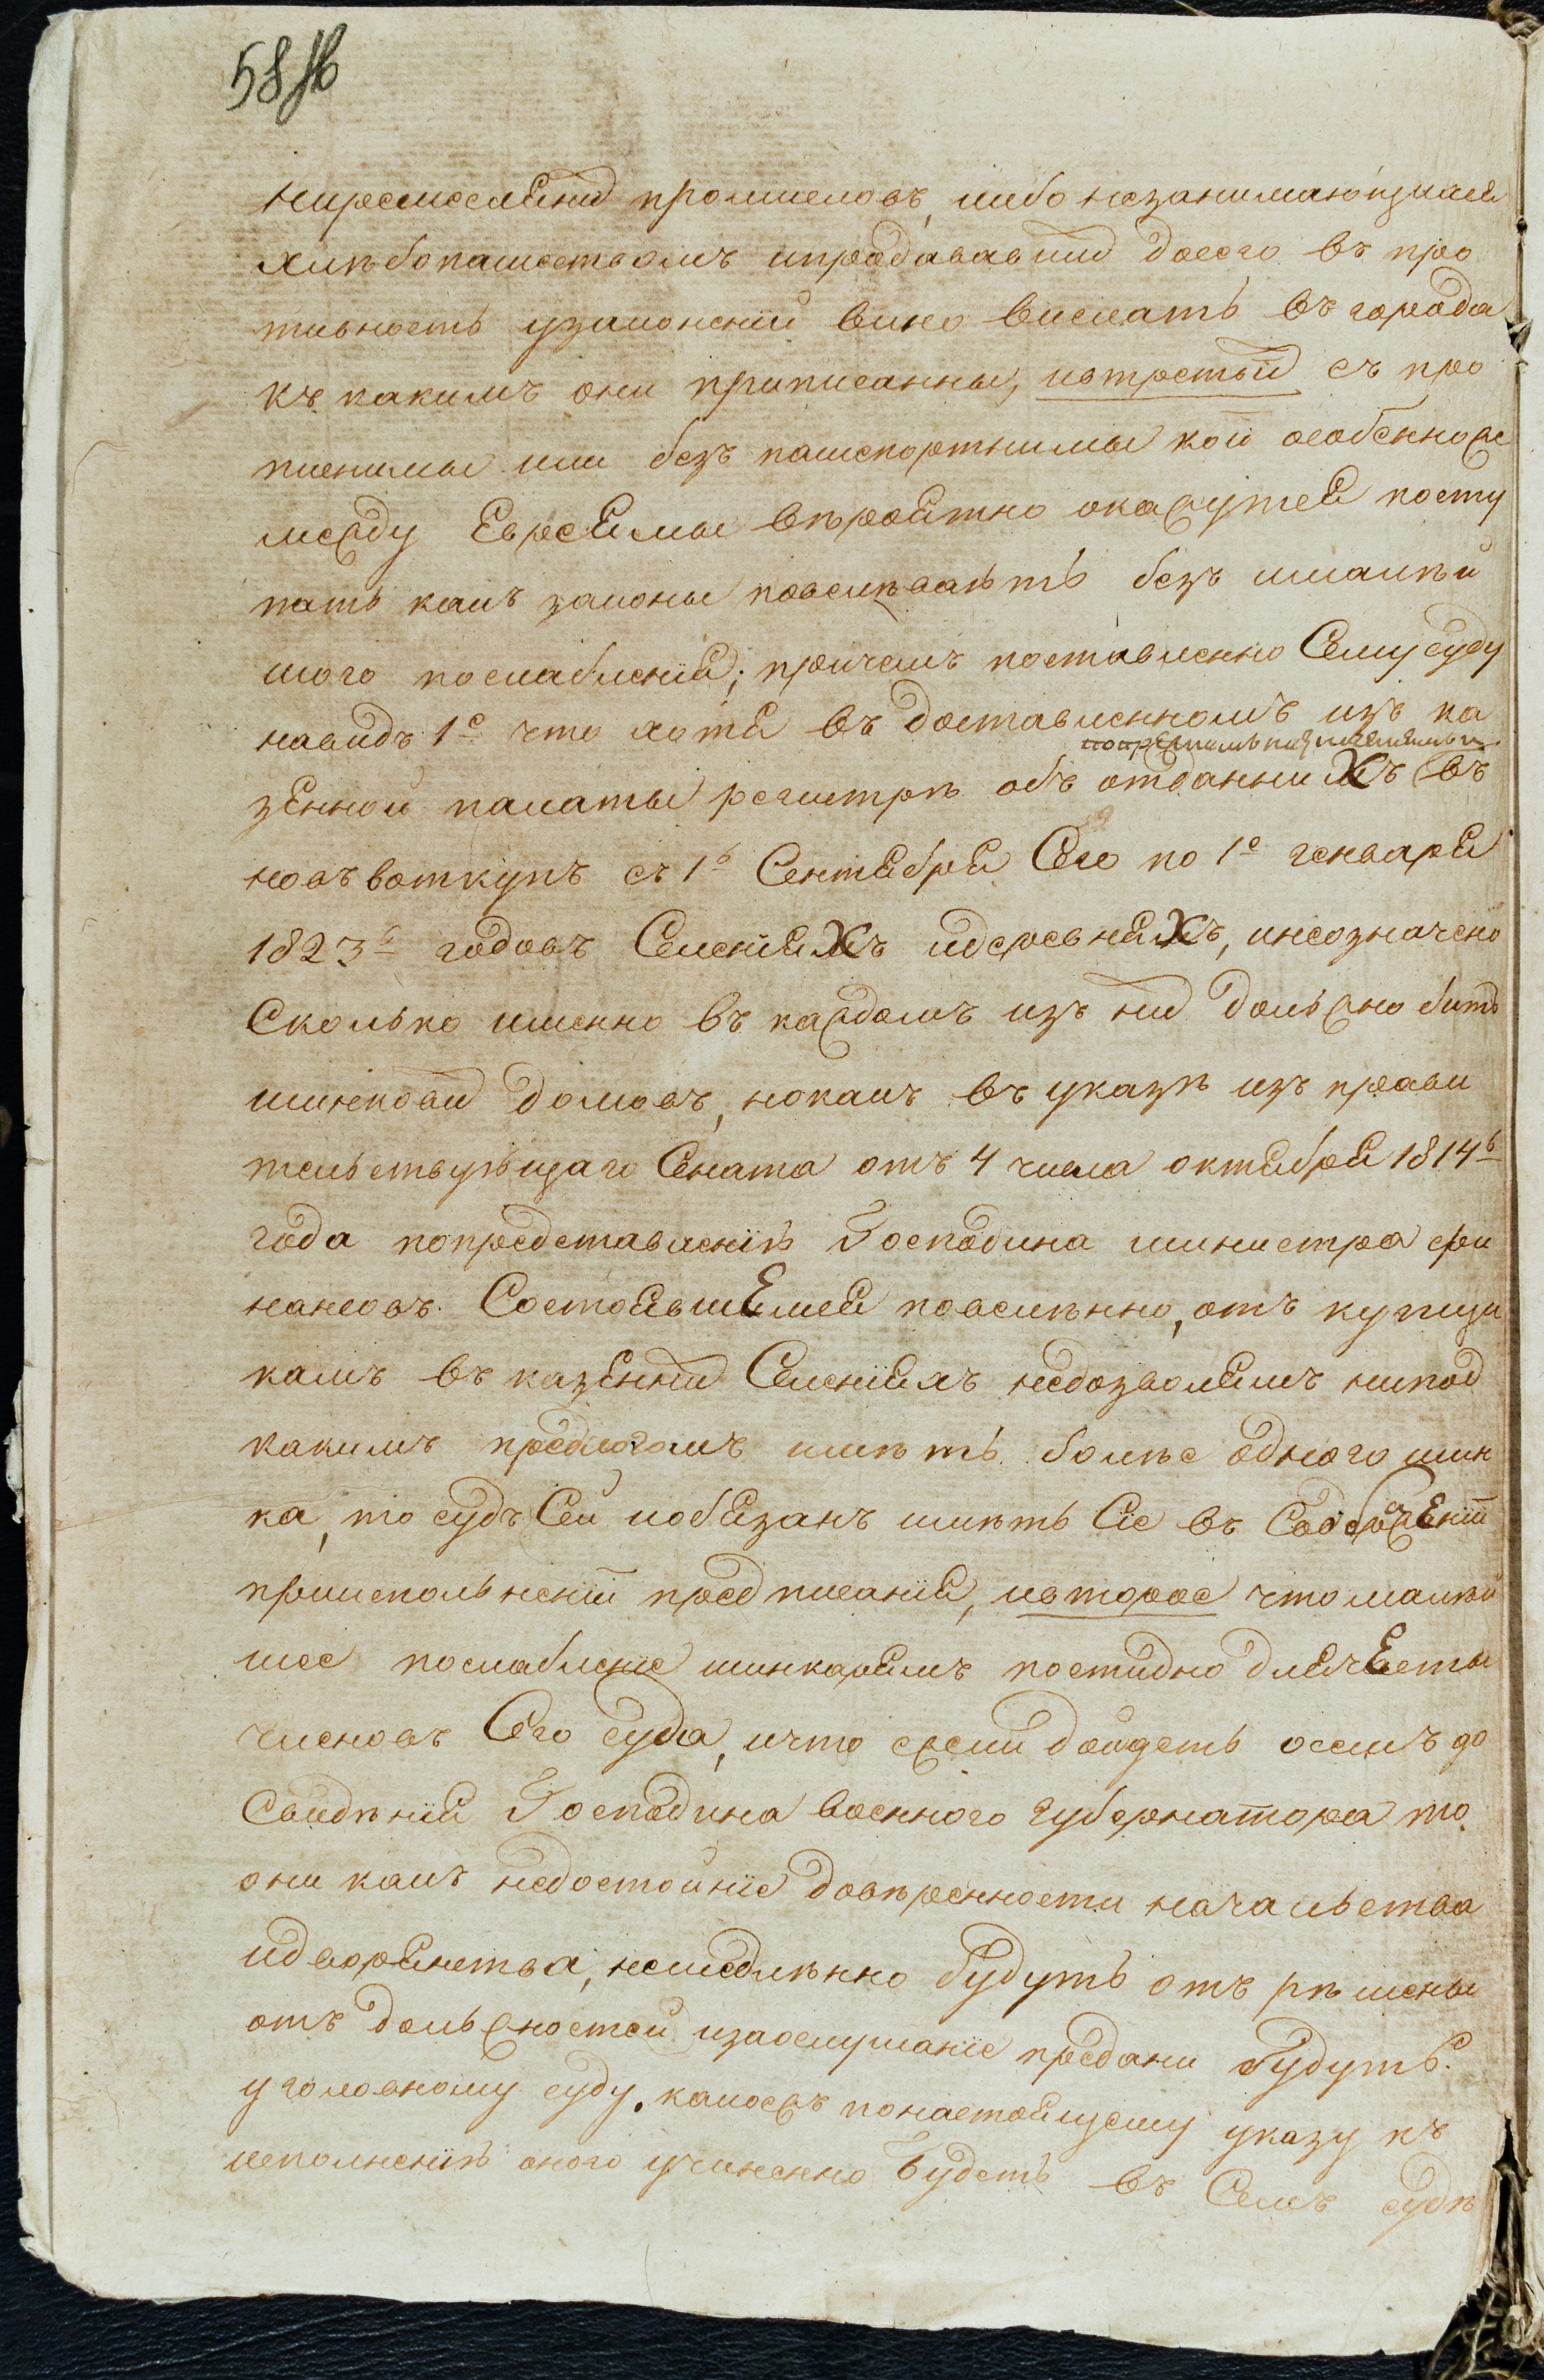 58 об
ниремесленнихъ промисловъ, либо незанимающихся
хлѣбопашеством и продававших досего въ про
тивность узаконеній вино вислать въ города
къ какимъ они приписанны, итретьи съ про
пиенимы или безъ пашпортнимы кои особенно же
между Евреями вѣроятно окажутся посту
пать какъ законы повелѣваютъ безъ малѣй
шого послабленія; причемъ поставленно Семусуду
навидъ 1е что хотя въ доставленномъ изъ ка
зенной палаты регистрѣ объ отданнихъ въ
новъ воткупъ съ 1го Сентября Сего по 1е генваря
1823го годовъ Селеніяхъ идеревняхъ, инеозначено
Сколько именно въ каждомъ изъ них должно бить
шинкових домовъ, нокакъ въ указѣ изъ прави
тельствующаго Сената отъ 4 числа октября 1814го
года попредставленію Господина министра фи
нансовъ Состоявшемся повелѣнно, откупщи
камъ въ казенних Селеніяхъ недозволятъ нипод
какимъ предлогомъ имѣть болѣе одного шин
ка, то судъ Сей иобязанъ имѣть Сіе въ Соображеніи
приисполненіи предписанія, ивторое что малѣй
шее послабленіе шинкарямъ постидно длячести
членовъ Сего суда, ичто ежели дойдетъ осемъ до
Свидѣнія Господина военного Губернатора то
они какъ недостойніе довѣренности начальства
идворянства, немедлѣнно будутъ отъ рѣшены
отъ должностей изаослушаніе предани будутъ
уголовному суду. каковъ понастоящему указу къ
исполненію оного учиненно будетъ въ Семъ судѣ